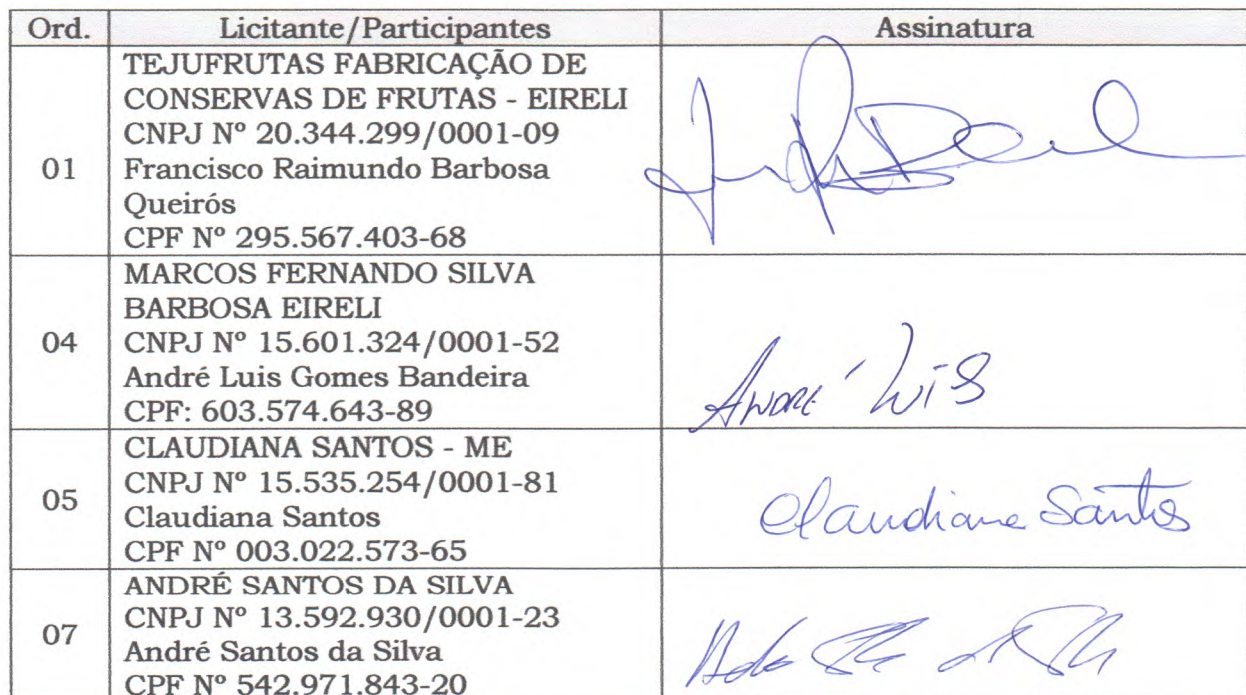 Ord. Licitante/Participantes Assinatura
TEJUFRUTAS FABRICAÇÃO DE
CONSERVAS DE FRUTAS - EIRELI
CNPJ Nº 20.344.299/0001-09
01 Francisco Raimundo Barbosa
Queirós
CPF Nº 295.567.403-68
MARCOS FERNANDO SILVA
BARBOSA EIRELI
04 CNPJ Nº 15.601.324/0001-52
André Luis Gomes Bandeira
CPF: 603.574.643-89
André Luis
CLAUDIANA SANTOS - ME
CNPJ Nº 15.535.254/0001-81
05 Claudiana Santos
CPF Nº 003.022.573-65
Claudiana Santos
ANDRÉ SANTOS DA SILVA
CNPJ Nº 13.592.930/0001-23
07 André Santos da Silva
CPF Nº 542.971.843-20